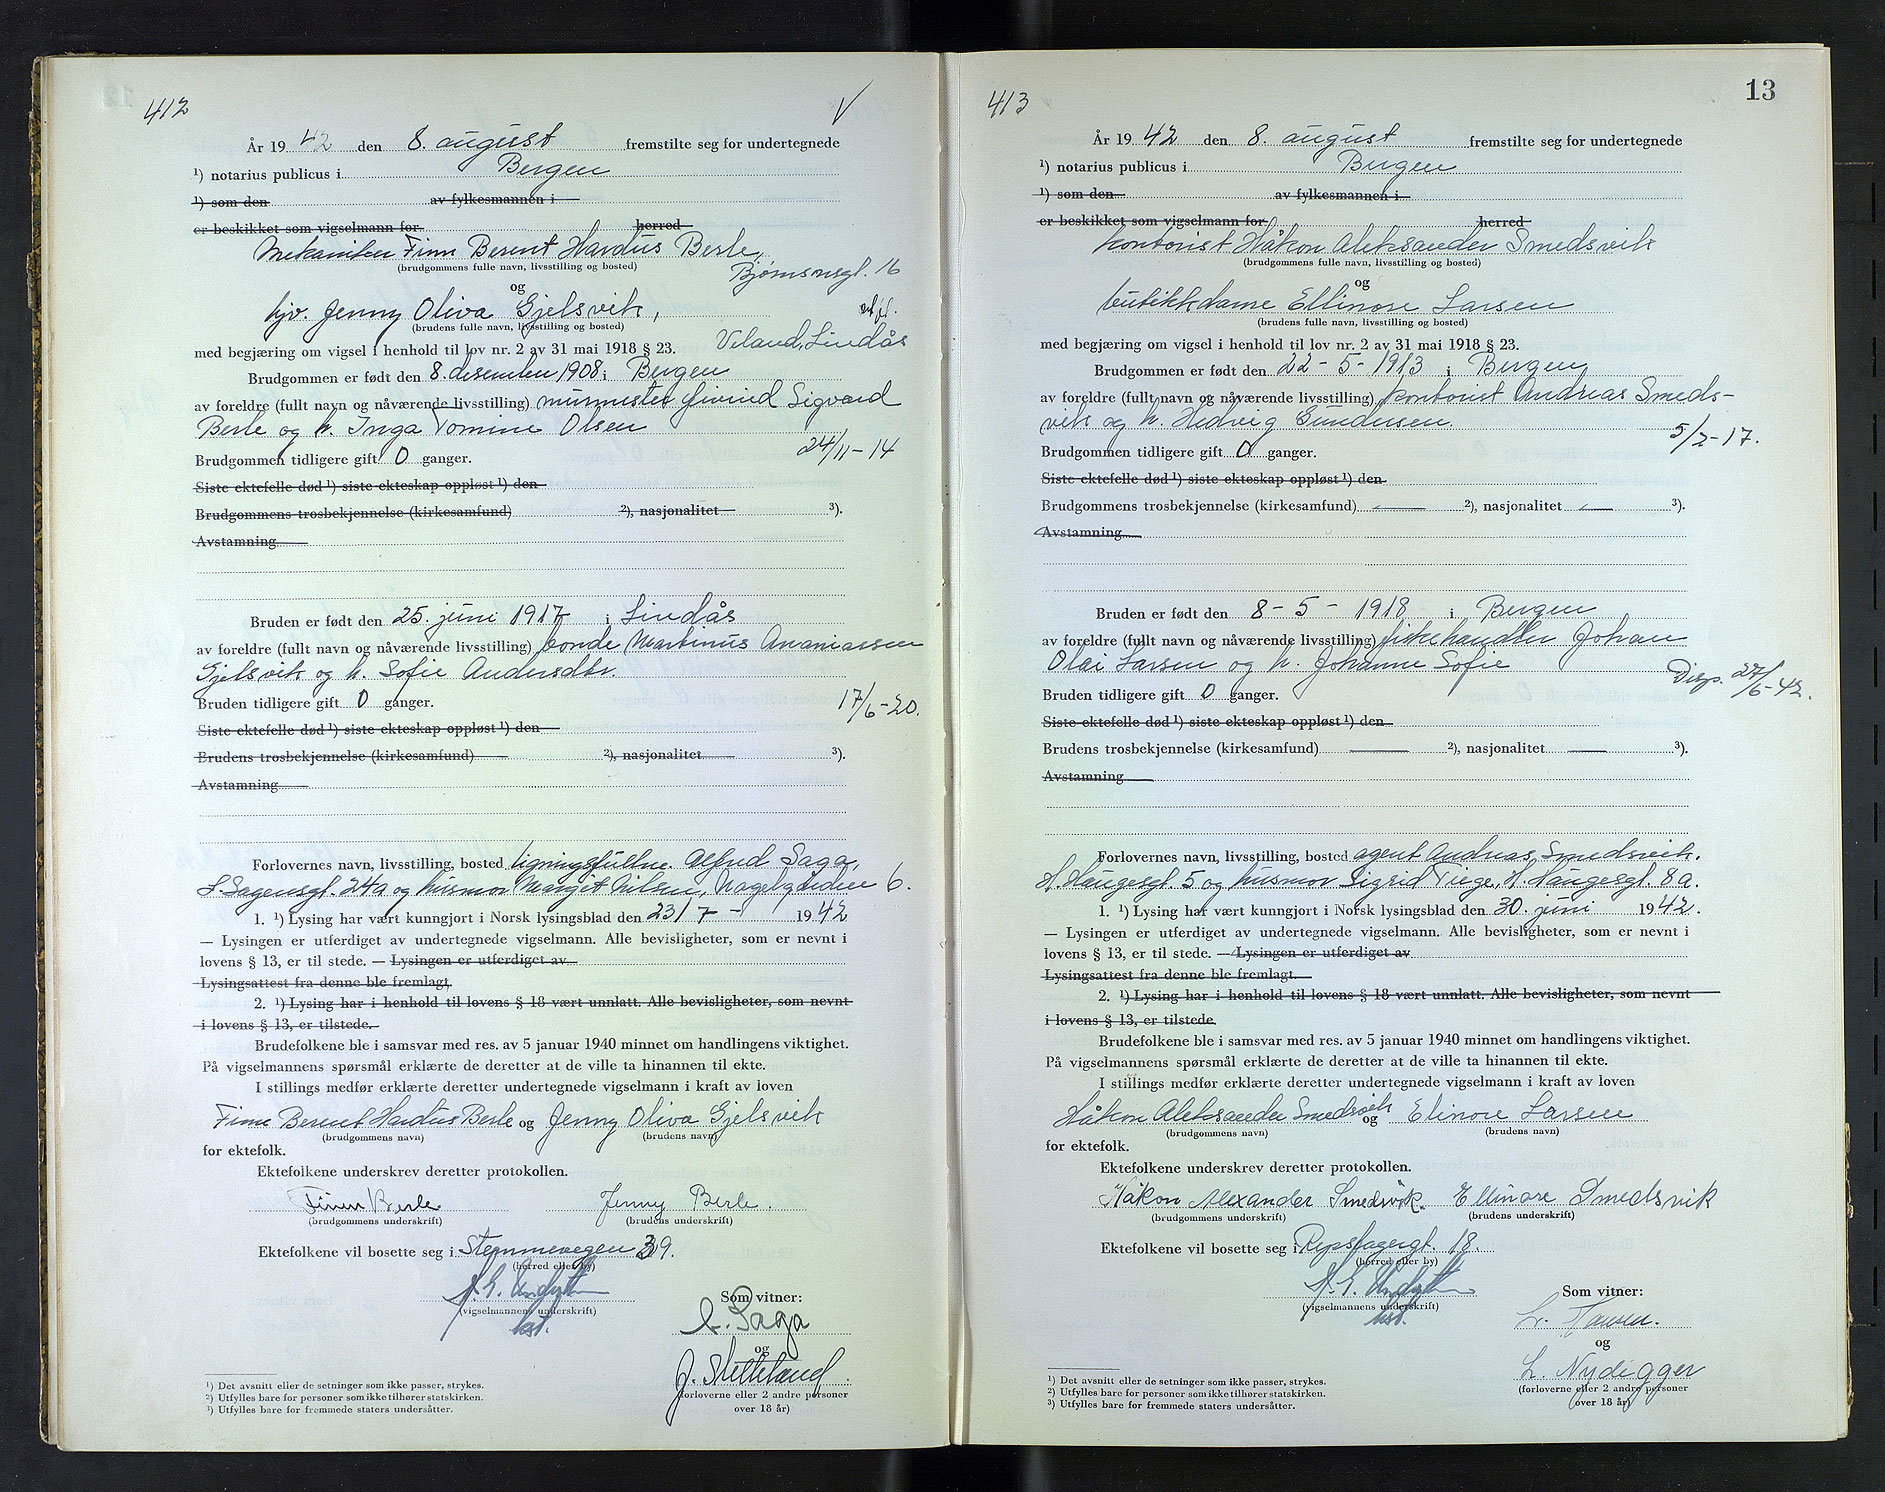 412
V
År 19 42 den 8. august fremstilte seg for undertegnede
¹) notarius publicus i Bergen
¹) som den av fylkesmannen i
er beskikket som vigselmann for herred
Mekaniker Finn Berent Hardus Berle,
(brudgommens fulle navn, livsstilling og bosted)
Bjørnsonsgt. 16
og
hjv. Jenny Oliva Gjelsvik,
(brudens fulle navn, livsstilling og bosted)
med begjæring om vigsel i henhold til lov nr. 2 av 31 mai 1918 § 23. Lindås
Brudgommen er født den 8. desember 1908 i Bergen
av foreldre (fullt navn og nåværende livsstilling) murmester Eivind Sigvard
Berle og h. Inga Tomine Olsen
24/11-14
Brudgommen tidligere gift 0 ganger.
Siste ektefelle død ¹) siste ekteskap oppløst ¹) den
Brudgommens trosbekjennelse (kirkesamfund) ²), nasjonalitet ³).
Avstamning
Bruden er født den 25. juni 1917 i Lindås
av foreldre (fullt navn og nåværende livsstilling) bonde Martinus Ananiassen
Gjelsvik og h. Sofie Andersdtr.
Bruden tidligere gift 0 ganger. 17/6-20.
Siste ektefelle død ¹) siste ekteskap oppløst ¹) den
Brudens trosbekjennelse (kirkesamfund) ²), nasjonalitet ³).
Avstamning
Forlovernes navn, livsstilling, bosted ligningsfullm. Alfred Saga,
L. Sagensgt. 24a og husmor Margit Nilsen, Nagelgården 6.
1. ¹) Lysing har vært kunngjort i Norsk lysingsblad den 23/7 - 1942
— Lysingen er utferdiget av undertegnede vigselmann. Alle bevisligheter, som er nevnt i
lovens § 13, er til stede. — Lysingen er utferdiget av
Lysingsattest fra denne ble fremlagt.
2. ¹) Lysing har i henhold til lovens § 18 vært unnlatt. Alle bevisligheter, som nevnt
i lovens § 13, er tilstede.
Brudefolkene ble i samsvar med res. av 5 januar 1940 minnet om handlingens viktighet.
På vigselmannens spørsmål erklærte de deretter at de ville ta hinannen til ekte.
I stillings medfør erklærte deretter undertegnede vigselmann i kraft av loven
Finn Berent Hardus Berle og Jenny Oliva Gjelsvik
(brudgommens navn) (brudens navn)
for ektefolk.
Ektefolkene underskrev deretter protokollen.
Finn Berle Jenny Berle.
(brudgommens underskrift) (brudens underskrift)
Ektefolkene vil bosette seg i Stemmevegen 39.
(herred eller by)
(vigselmannens underskrift)
Som vitner:
A. Saga
og
(forloverne eller 2 andre personer
over 18 år)
¹) Det avsnitt eller de setninger som ikke passer, strykes.
²) Utfylles bare for personer som ikke tilhører statskirken.
³) Utfylles bare for fremmede staters undersåtter.
413
13
År 19 42 den 8. august fremstilte seg for undertegnede
¹) notarius publicus i Bergen
¹) som den av fylkesmannen i
er beskikket som vigselmann for herred
kontorist Håkon Aleksander Smedsvik
(brudgommens fulle navn, livsstilling og bosted)
og
butikkdame Ellinore Larsen
(brudens fulle navn, livsstilling og bosted)
med begjæring om vigsel i henhold til lov nr. 2 av 31 mai 1918 § 23.
Brudgommen er født den 22-5-1913 i Bergen
av foreldre (fullt navn og nåværende livsstilling) kontorist Andreas Smeds-
vik og h. Hedvig Gundersen.
5/2-17.
Brudgommen tidligere gift 0 ganger.
Siste ektefelle død ¹) siste ekteskap oppløst ¹) den
Brudgommens trosbekjennelse (kirkesamfund) — ²), nasjonalitet — ³).
Avstamning
Bruden er født den 8-5-1918 i Bergen
av foreldre (fullt navn og nåværende livsstilling) fiskehandler Johan
Olai Larsen og h. Johanne Sofie
Disp. 27/6-42.
Bruden tidligere gift 0 ganger.
Siste ektefelle død ¹) siste ekteskap oppløst ¹) den
Brudens trosbekjennelse (kirkesamfund) — ²), nasjonalitet — ³).
Avstamning
Forlovernes navn, livsstilling, bosted agent Andreas Smedsvik.
H. Haugesgt. 5 og husmor Sigrid Tuge, H. Haugesgt. 8a.
1. ¹) Lysing har vært kunngjort i Norsk lysingsblad den 30. juni 1942.
— Lysingen er utferdiget av undertegnede vigselmann. Alle bevisligheter, som er nevnt i
lovens § 13, er til stede. — Lysingen er utferdiget av
Lysingsattest fra denne ble fremlagt.
2. ¹) Lysing har i henhold til lovens § 18 vært unnlatt. Alle bevisligheter, som nevnt
i lovens § 13, er tilstede.
Brudefolkene ble i samsvar med res. av 5 januar 1940 minnet om handlingens viktighet.
På vigselmannens spørsmål erklærte de deretter at de ville ta hinannen til ekte.
I stillings medfør erklærte deretter undertegnede vigselmann i kraft av loven
Håkon Aleksander Smedsvik og Elinore Larsen
(brudgommens navn) (brudens navn)
for ektefolk.
Ektefolkene underskrev deretter protokollen.
Håkon Alexander Smedsvik. Ellinore Smedsvik
(brudgommens underskrift) (brudens underskrift)
Ektefolkene vil bosette seg i Repslagergt. 18.
(herred eller by)
(vigselmannens underskrift)
Som vitner:
L. Hansen.
og
L. Nydegger
(forloverne eller 2 andre personer
over 18 år)
¹) Det avsnitt eller de setninger som ikke passer, strykes.
²) Utfylles bare for personer som ikke tilhører statskirken.
³) Utfylles bare for fremmede staters undersåtter.